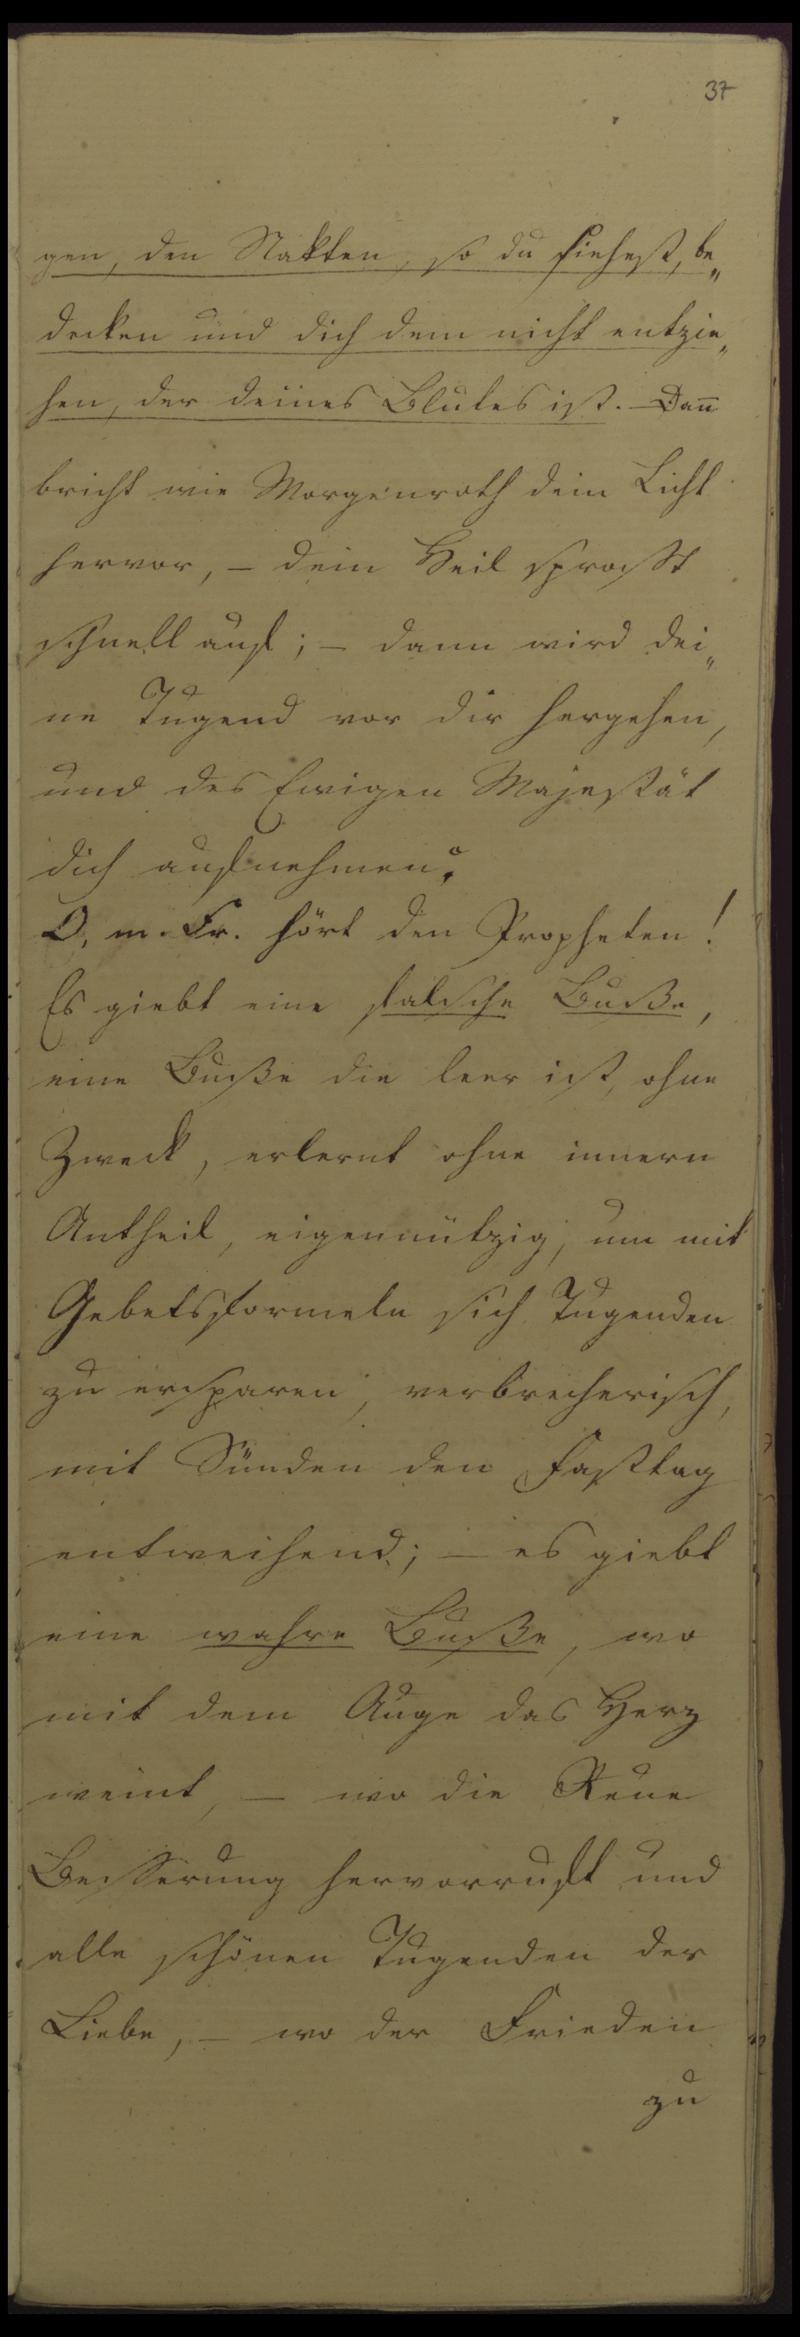 37
gen, den Nakten, so du siehest, be„
decken und dich dem nicht entzie„
hen, der deines Blutes ist. – Dan̄
bricht wie Morgenroth dein Licht
hervor, – dein Heil sprosst
schnell auf; – dann wird dei„
ne Tugend vor dir hergehen,
und des Ewigen Majestät
dich aufnehmen.“
O, m. Fr. hört den Propheten!
Es giebt eine falsche Buße,
eine Buße die leer ist, ohne
Zweck, erlernt ohne innern
Antheil, eigennützig, um mit
Gebetsformeln sich Tugenden
zu ersparen, verbrecherisch,
mit Sünden den Fasttag
entweihend; – es giebt
eine wahre Buße, wo
mit dem Auge das Herz
weint, – wo die Reue
Besserung hervorruft und
alle schönen Tugenden der
Liebe, – wo der Frieden
zu